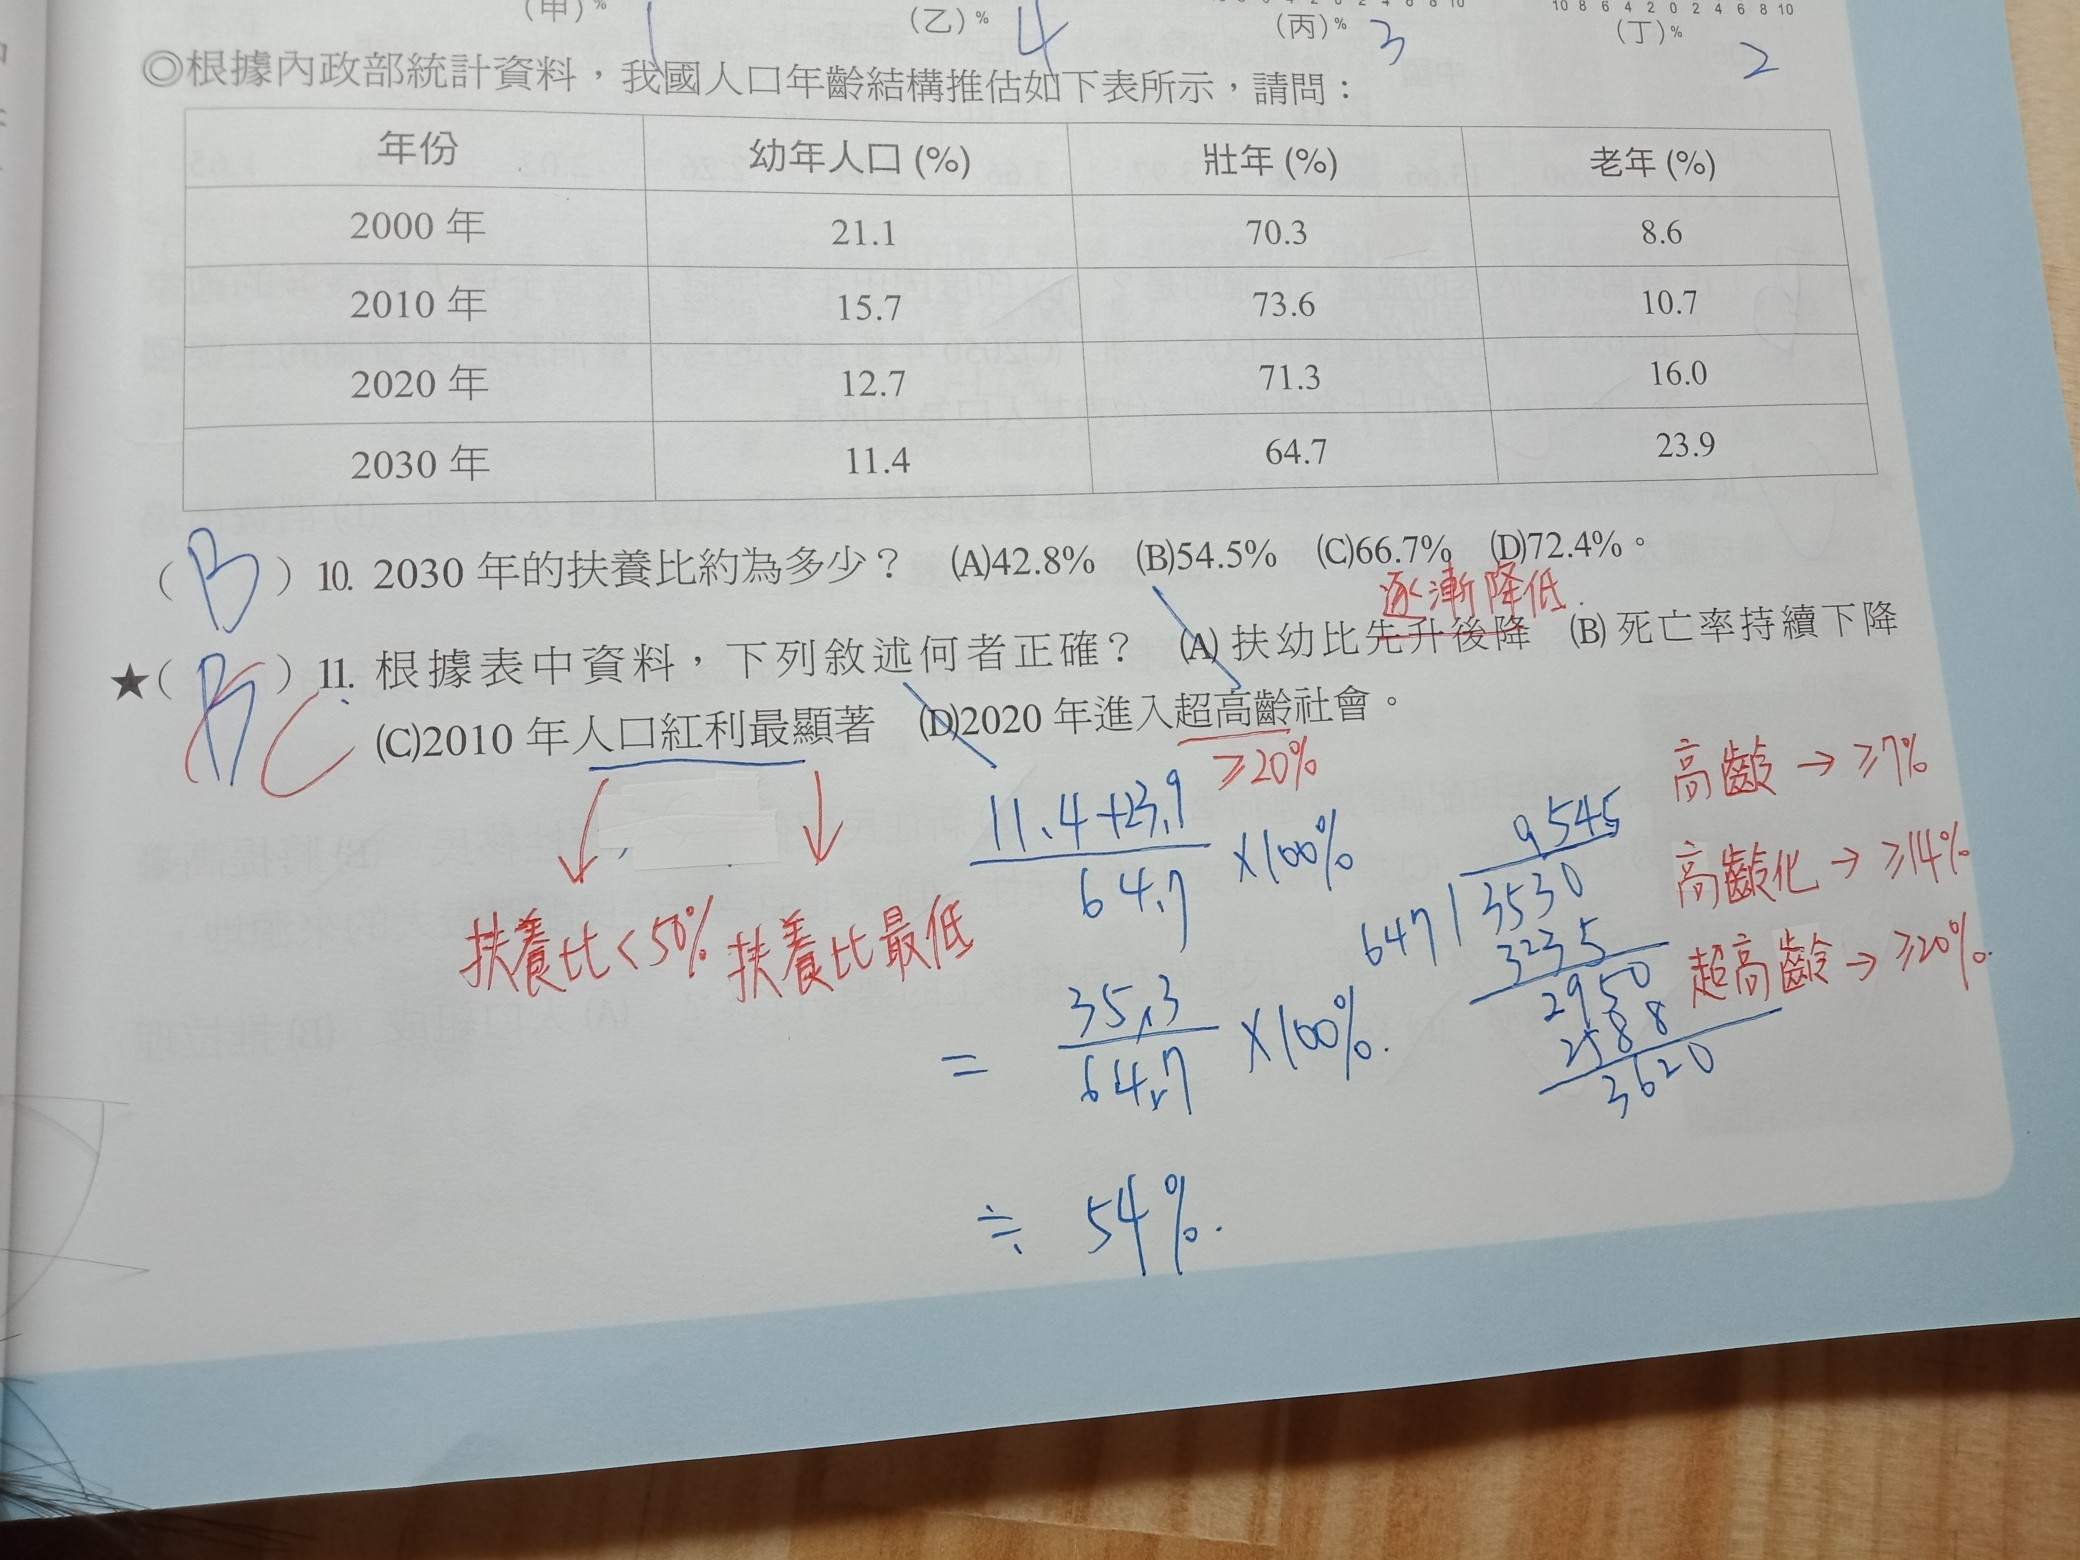 (甲)% (乙)% (丙)% (丁)%
10 8 6 4 2 0 2 4 6 8 10
1 4 3 2
◎根據內政部統計資料，我國人口年齡結構推估如下表所示，請問：
年份 幼年人口(%) 壯年(%) 老年(%)
2000 年 21.1 70.3 8.6
2010 年 15.7 73.6 10.7
2020 年 12.7 71.3 16.0
2030 年 11.4 64.7 23.9
( B ) 10. 2030 年的扶養比約為多少？ (A)42.8% (B)54.5% (C)66.7% (D)72.4%。
逐漸降低.
★( C ) 11. 根據表中資料，下列敘述何者正確？ (A) 扶幼比先升後降 (B) 死亡率持續下降
(C)2010 年人口紅利最顯著 (D)2020 年進入超高齡社會。
≥20%
高齡→≥7%
高齡化→≥14%
超高齡→≥20%.
扶養比<50% 扶養比最低
11.4+23.9
64.7
×100%
= 35.3
64.7
×100%.
≒ 54%.
9545
647 3530
3235
2950
2588
3620